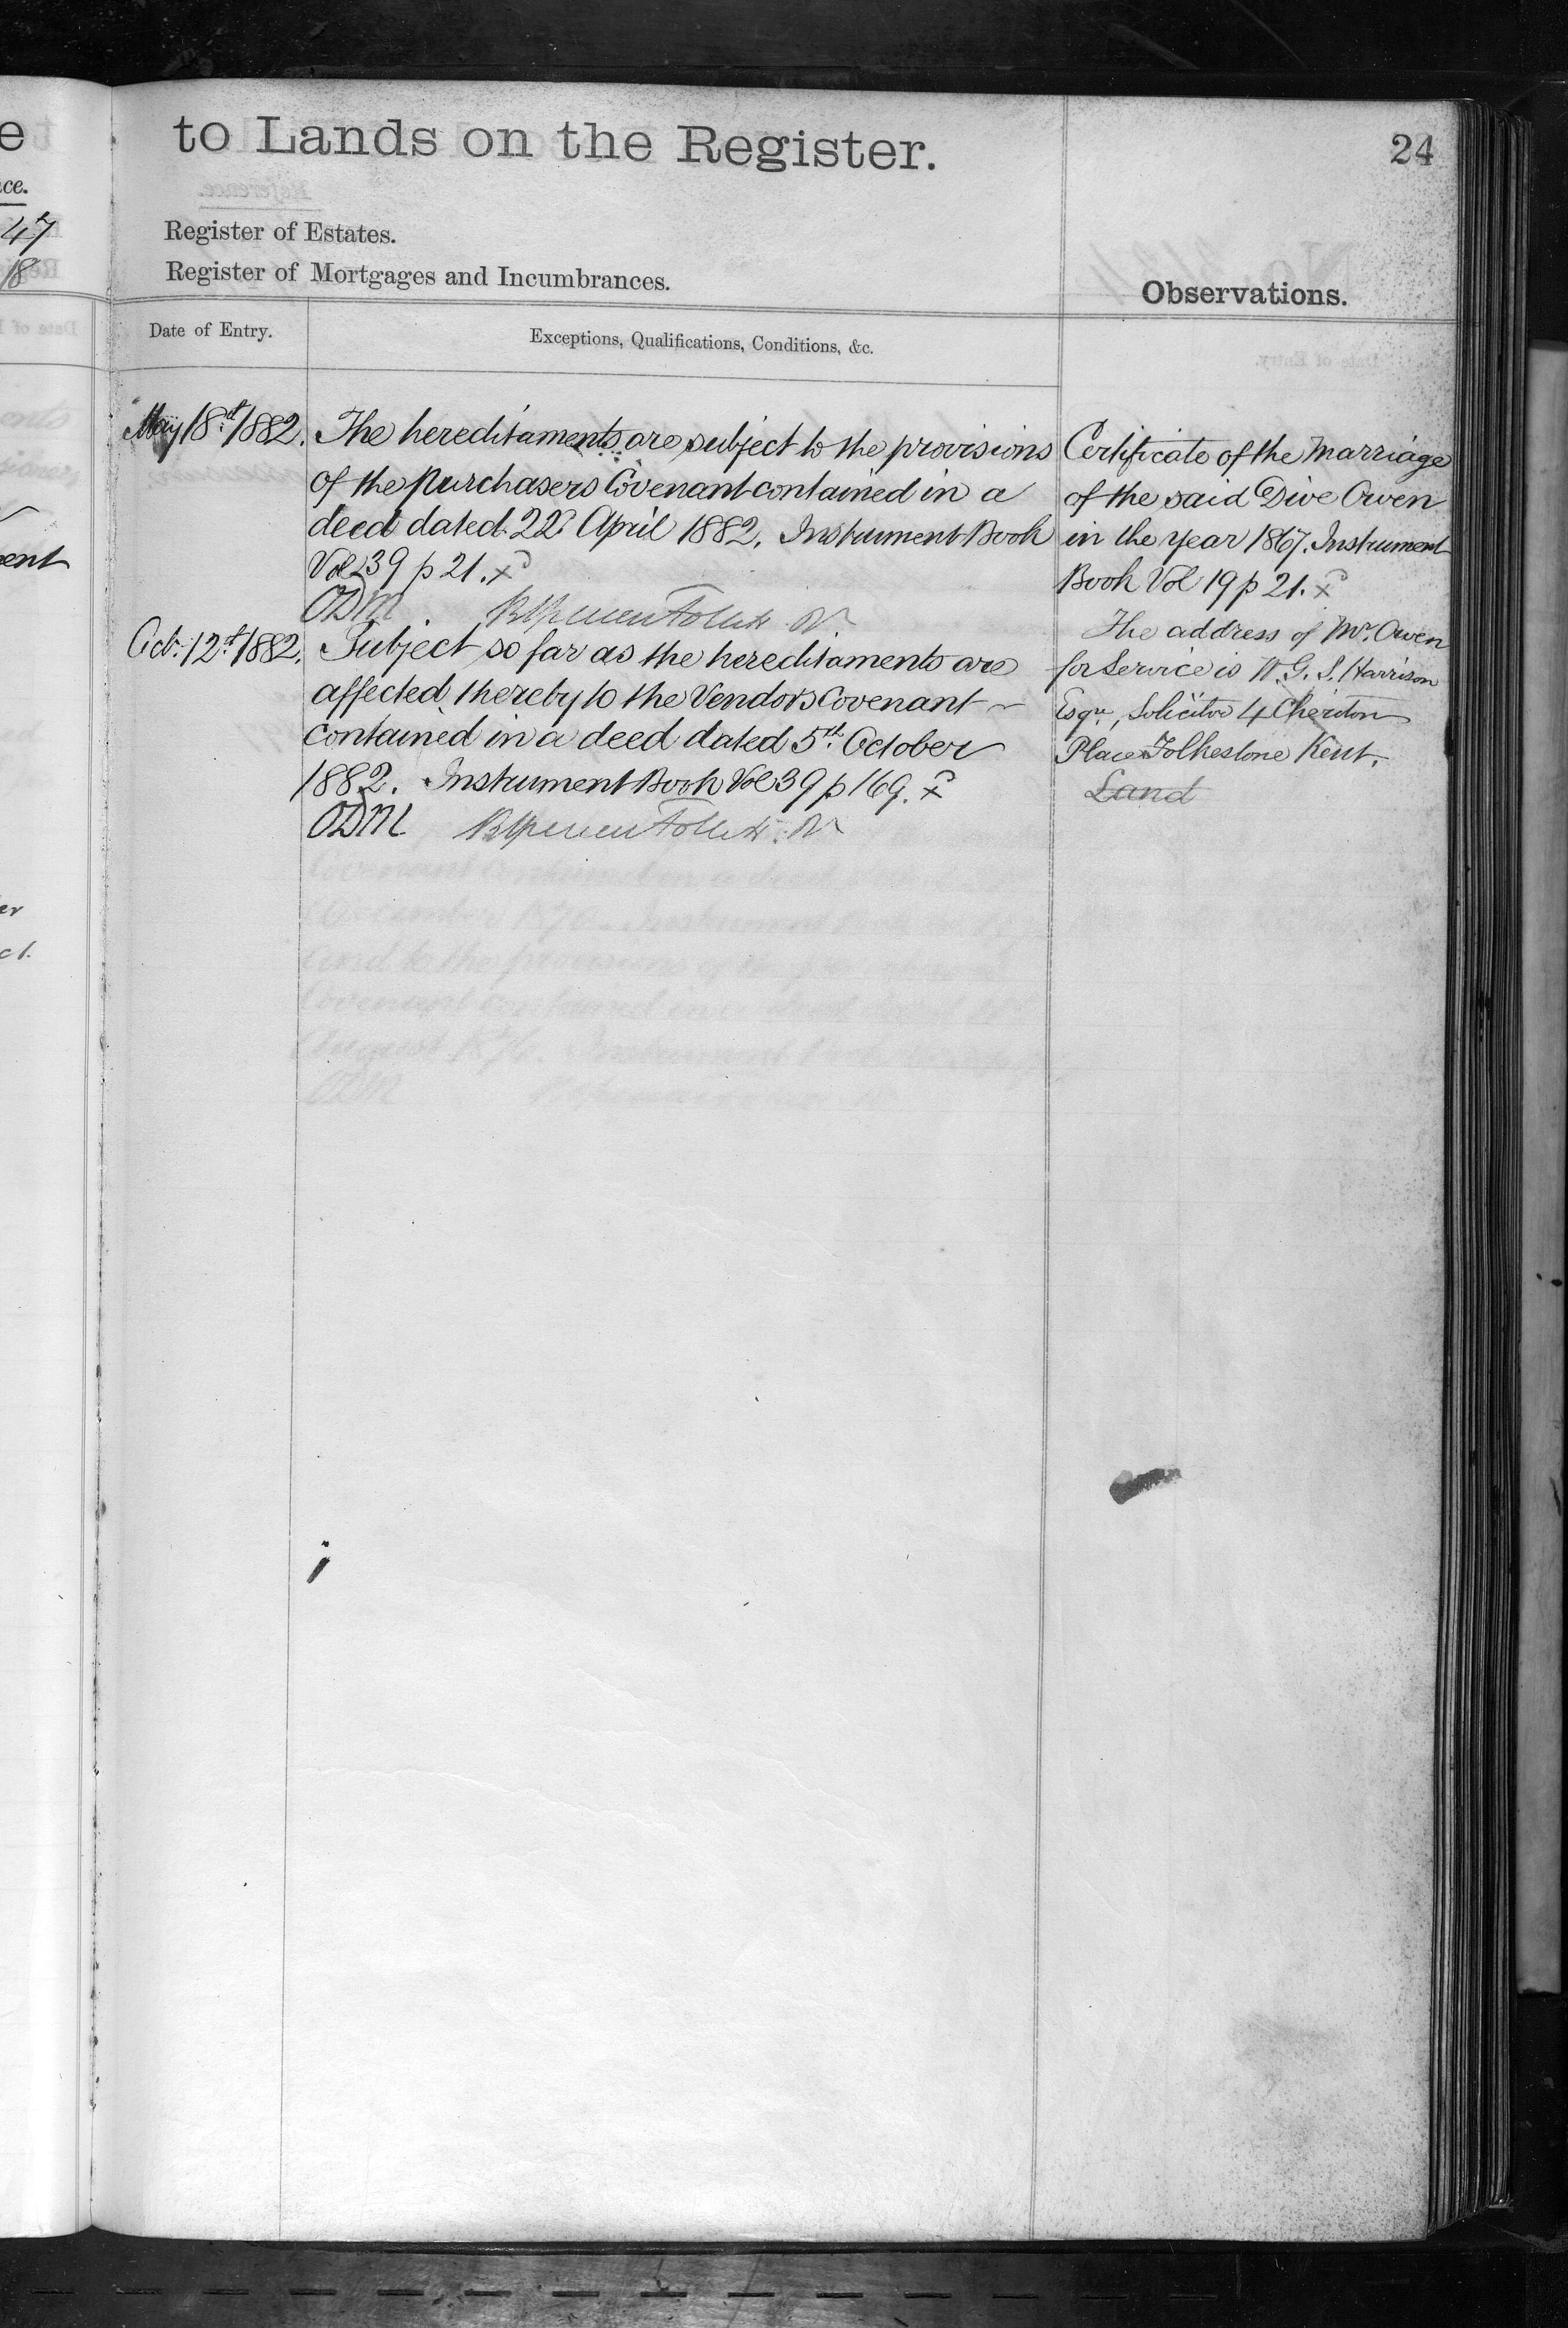 to Lands on the Register.
24
Register of Estates.
Register of Mortgages and Incumbrances.
Observations.
Date of Entry.
Exceptions, Qualifications, Conditions, &c.
47
18
ent
May 18th 1882. The hereditaments are subject to the provisions
of the Purchasers Covenant contained in a
deed dated 22d April 1882. Instrument Book
Vol 39 p 21. x
ODM
Octr. 12th 1882. Subject so far as the hereditaments are
affected thereby to the Vendors Covenant
contained in a deed dated 5th October
1882. Instrument Book Vol 39 p 169. x
ODM
Certificate of the Marriage
of the said Dive Owen
in the year 1867. Instrument
Book Vol 19 p 21. x
The address of Mr. Owen
for Service is W. G. S. Harrison
Esqre, Solicitor 4 Cheriton
Place Folkestone Kent.
Land